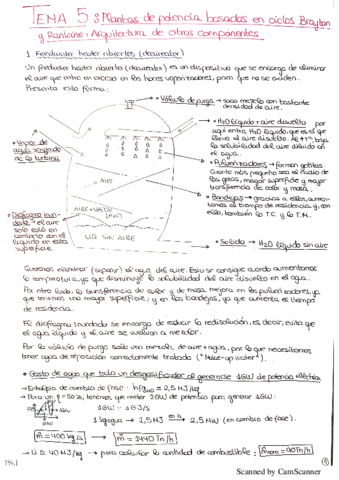 TEMA 5: Plantas de potencia basadas en ciclos Brayton
y Rankine: Arquitectura de otros componentes
1. Feedwater heater abiertos (deaireador)
Un feedwater heater abierto (deaireador) es un dispositivo que se encarga de eliminar
el aire que entra en exceso en los
para que no se oxiden.
Presenta esta forma:
Válvula de purga → saca mezcla con bastante
densidad de aire.
H2O líquido + aire disuelto → por
aquí entra H2O líquido, que es el que
lleva el aire disuelto.
la solubilidad del aire
el agua.
Pulverizadores → forman gotitas.
Cuanto más pequeño sea el fluido de
las gotas, mayor superficie y mayor
transferencia de calor y masa.
Bandejas → gracias a ellas, aumentamos
el tiempo de residencia, y con
ello, también la T.C. y la T.M.
Vapor de
agua sangrado
de la turbina
Diafragma inundable
→ el aire
solo está en
contacto con el
líquido en esta
superficie.
AIRE+VAPOR
LIQ. SIN AIRE
Salida → H2O líquido sin aire
Queremos eliminar (separar) el agua del aire. Esto se consigue cuando aumentamos
la temperatura, ya que disminuye la solubilidad del aire disuelto en el agua.
Por otro lado, la transferencia de calor y de masa mejora en los pulverizadores, ya
que tenemos una mayor superficie, y en las bandejas, ya que aumenta el tiempo
de residencia.
El diafragma inundado se encarga de reducir la redisolución, es decir, evita que
el agua líquida y el aire se vuelvan a mezclar.
Por la válvula de purga sale una mezcla, de aire + agua, por lo que necesitamos
tener agua de reposición correctamente tratada ("Make-up water").
Gasto de agua que trata un desgasificador al generarse 1GW de potencia eléctrica
→ Entalpía de cambio de fase: hfg = 2,5 MJ/kg
→ Para un η = 50%, tenemos que meter 2GW de potencia para generar 1GW:
1GW = 1GJ/s
1 kg agua → 2,5 MJ → 2,5 MW (en cambio de fase).
ṁ = 400 kg/s → ṁ = 1440 Tn/h
Li ≈ 40 MJ/kg → para calcular la cantidad de combustible:
Scanned by CamScanner